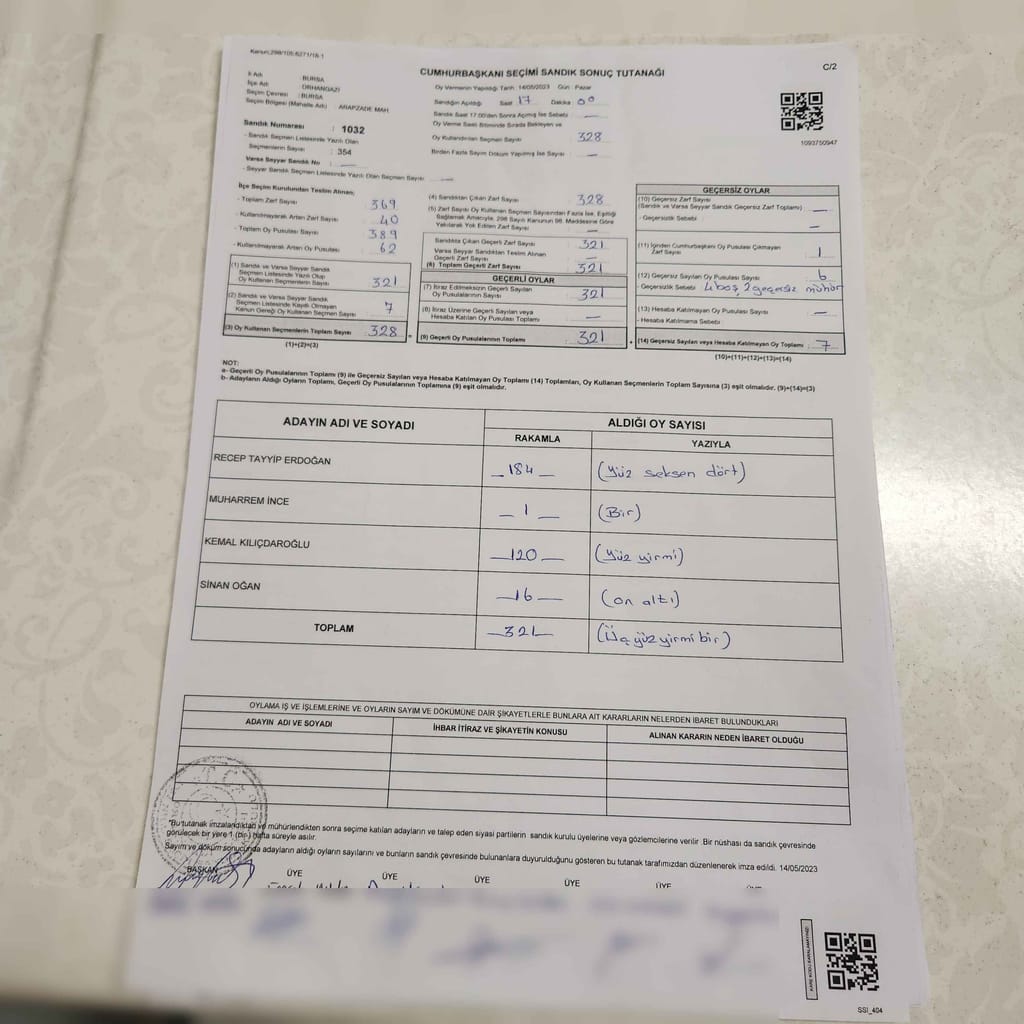 Kanun:298/105;6271/16-1
C/2
CUMHURBAŞKANI SEÇİMİ SANDIK SONUÇ TUTANAĞI
İl Adı : BURSA
İlçe Adı : ORHANGAZİ
Seçim Çevresi : BURSA
Seçim Bölgesi (Mahalle Adı) : ARAPZADE MAH.
Oy Vermenin Yapıldığı Tarih: 14/05/2023 Gün : Pazar
Sandığın Açıldığı Saat 17 Dakika 00
Sandık Saat 17.00'den Sonra Açılmış İse Sebebi : —
Oy Verme Saati Bitiminde Sırada Bekleyen ve
Oy Kullandırılan Seçmen Sayısı : 328
Birden Fazla Sayım Döküm Yapılmış İse Sayısı : —
1093750947
Sandık Numarası : 1032
- Sandık Seçmen Listesinde Yazılı Olan
Seçmenlerin Sayısı : 354
Varsa Seyyar Sandık No : —
- Seyyar Sandık Seçmen Listesinde Yazılı Olan Seçmen Sayısı : —
İlçe Seçim Kurulundan Teslim Alınan;
- Toplam Zarf Sayısı : 369
- Kullanılmayarak Artan Zarf Sayısı : 40
- Toplam Oy Pusulası Sayısı : 389
- Kullanılmayarak Artan Oy Pusulası : 62
(1) Sandık ve Varsa Seyyar Sandık
Seçmen Listesinde Yazılı Olup
Oy Kullanan Seçmenlerin Sayısı : 321
(2) Sandık ve Varsa Seyyar Sandık
Seçmen Listesinde Kayıtlı Olmayan
Kanun Gereği Oy Kullanan Seçmen Sayısı : 7
(3) Oy Kullanan Seçmenlerin Toplam Sayısı : 328
(1)+(2)=(3)
(4) Sandıktan Çıkan Zarf Sayısı : 328
(5) Zarf Sayısı Oy Kullanan Seçmen Sayısından Fazla İse, Eşitliği
Sağlamak Amacıyla, 298 Sayılı Kanunun 98. Maddesine Göre
Yakılarak Yok Edilen Zarf Sayısı : —
Sandıkta Çıkan Geçerli Zarf Sayısı : 321
Varsa Seyyar Sandıktan Teslim Alınan
Geçerli Zarf Sayısı : —
(6) Toplam Geçerli Zarf Sayısı : 321
GEÇERLİ OYLAR
(7) İtiraz Edilmeksizin Geçerli Sayılan
Oy Pusulalarının Sayısı : 321
(8) İtiraz Üzerine Geçerli Sayılan veya
Hesaba Katılan Oy Pusulası Toplamı : —
(9) Geçerli Oy Pusulalarının Toplamı : 321
GEÇERSİZ OYLAR
(10) Geçersiz Zarf Sayısı
(Sandık ve Varsa Seyyar Sandık Geçersiz Zarf Toplamı) : —
- Geçersizlik Sebebi : —
(11) İçinden Cumhurbaşkanı Oy Pusulası Çıkmayan
Zarf Sayısı : 1
(12) Geçersiz Sayılan Oy Pusulası Sayısı : 6
- Geçersizlik Sebebi : 4 boş 2 geçersiz mühür
(13) Hesaba Katılmayan Oy Pusulası Sayısı : —
- Hesaba Katılmama Sebebi :
(14) Geçersiz Sayılan veya Hesaba Katılmayan Oy Toplamı : 7
(10)+(11)+(12)+(13)=(14)
NOT:
a- Geçerli Oy Pusulalarının Toplamı (9) ile Geçersiz Sayılan veya Hesaba Katılmayan Oy Toplamı (14) Toplamları, Oy Kullanan Seçmenlerin Toplam Sayısına (3) eşit olmalıdır. (9)+(14)=(3)
b- Adayların Aldığı Oyların Toplamı, Geçerli Oy Pusulalarının Toplamına (9) eşit olmalıdır.
ADAYIN ADI VE SOYADI ALDIĞI OY SAYISI
RAKAMLA YAZIYLA
RECEP TAYYİP ERDOĞAN —184— (Yüz seksen dört)
MUHARREM İNCE —1— (Bir)
KEMAL KILIÇDAROĞLU —120— (Yüz yirmi)
SİNAN OĞAN —16— (on altı)
TOPLAM —321— (Üç yüz yirmi bir)
OYLAMA İŞ VE İŞLEMLERİNE VE OYLARIN SAYIM VE DÖKÜMÜNE DAİR ŞİKAYETLERLE BUNLARA AİT KARARLARIN NELERDEN İBARET BULUNDUKLARI
ADAYIN ADI VE SOYADI İHBAR İTİRAZ VE ŞİKAYETİN KONUSU ALINAN KARARIN NEDEN İBARET OLDUĞU
"Bu tutanak imzalandıktan ve mühürlendikten sonra seçime katılan adayların ve talep eden siyasi partilerin sandık kurulu üyelerine veya gözlemcilerine verilir. Bir nüshası da sandık çevresinde
görülecek bir yere 1 (bir) hafta süreyle asılır.
Sayım ve döküm sonucunda adayların aldığı oyların sayılarını ve bunların sandık çevresinde bulunanlara duyurulduğunu gösteren bu tutanak tarafımızdan düzenlenerek imza edildi. 14/05/2023
BAŞKAN ÜYE ÜYE ÜYE ÜYE ÜYE
SSİ_404